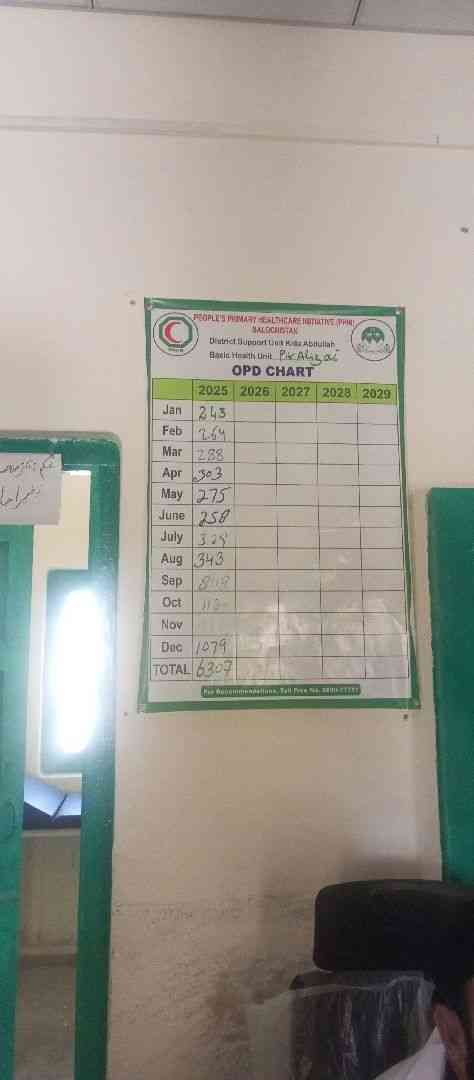 PEOPLE'S PRIMARY HEALTHCARE INITIATIVE (PPHI)
BALOCHISTAN
District Support Unit Killa Abdullah
Basic Health Unit Pir Alizai
OPD CHART
2025 2026 2027 2028 2029
Jan 243
Feb 264
Mar 288
Apr 303
May 275
June 258
July 328
Aug 343
Sep
Oct
Nov
Dec 1079
TOTAL 6307
For Recommendations, Toll Free No.